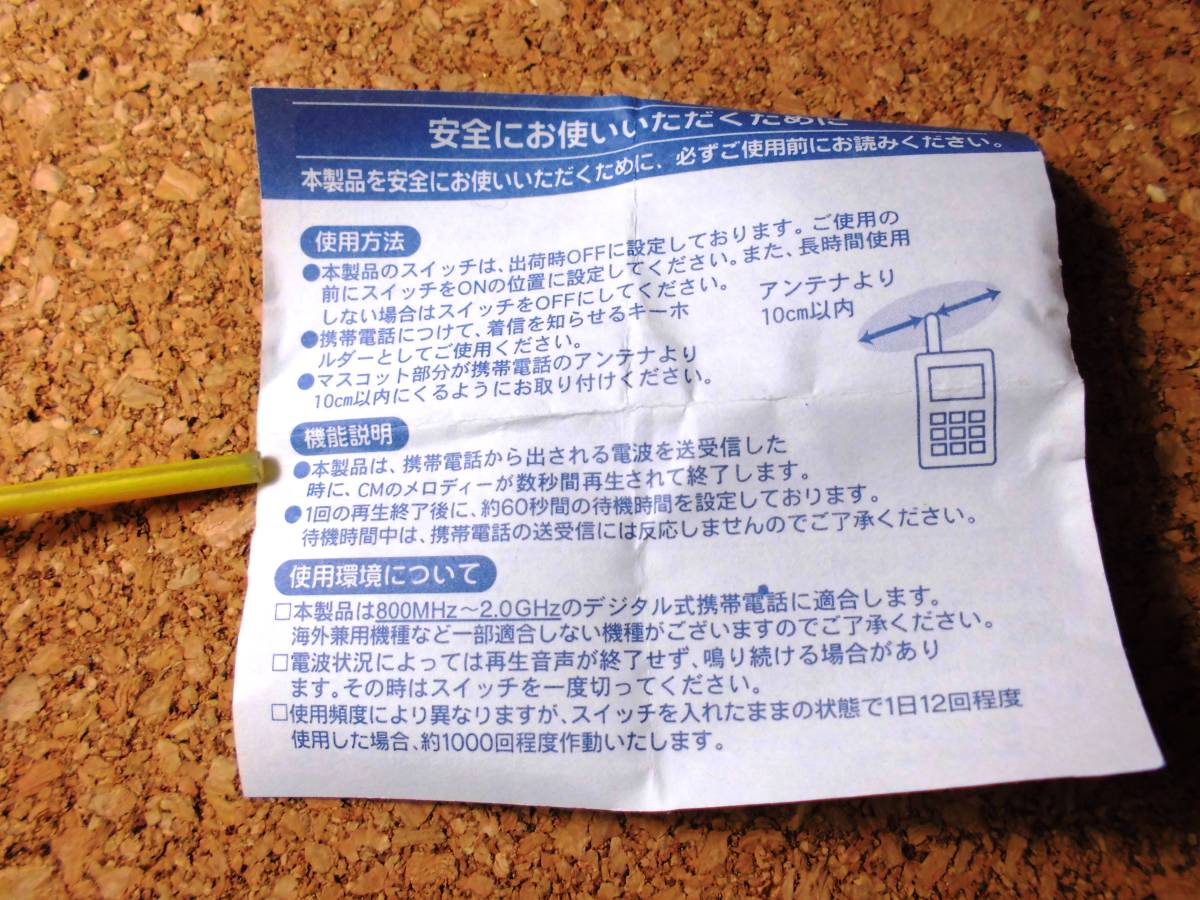 安全にお使いいただくために
本製品を安全にお使いいただくために、必ずご使用前にお読みください。
使用方法
●本製品のスイッチは、出荷時OFFに設定しております。ご使用の
前にスイッチをONの位置に設定してください。また、長時間使用
しない場合はスイッチをOFFにしてください。
●携帯電話につけて、着信を知らせるキーホ
ルダーとしてご使用ください。
●マスコット部分が携帯電話のアンテナより
10cm以内にくるようにお取り付けください。
アンテナより
10cm以内
機能説明
●本製品は、携帯電話から出される電波を送受信した
時に、CMのメロディーが数秒間再生されて終了します。
●1回の再生終了後に、約60秒間の待機時間を設定しております。
待機時間中は、携帯電話の送受信には反応しませんのでご了承ください。
使用環境について
□本製品は800MHz～2.0GHzのデジタル式携帯電話に適合します。
海外兼用機種など一部適合しない機種がございますのでご了承ください。
□電波状況によっては再生音声が終了せず、鳴り続ける場合があり
ます。その時はスイッチを一度切ってください。
□使用頻度により異なりますが、スイッチを入れたままの状態で1日12回程度
使用した場合、約1000回程度作動いたします。